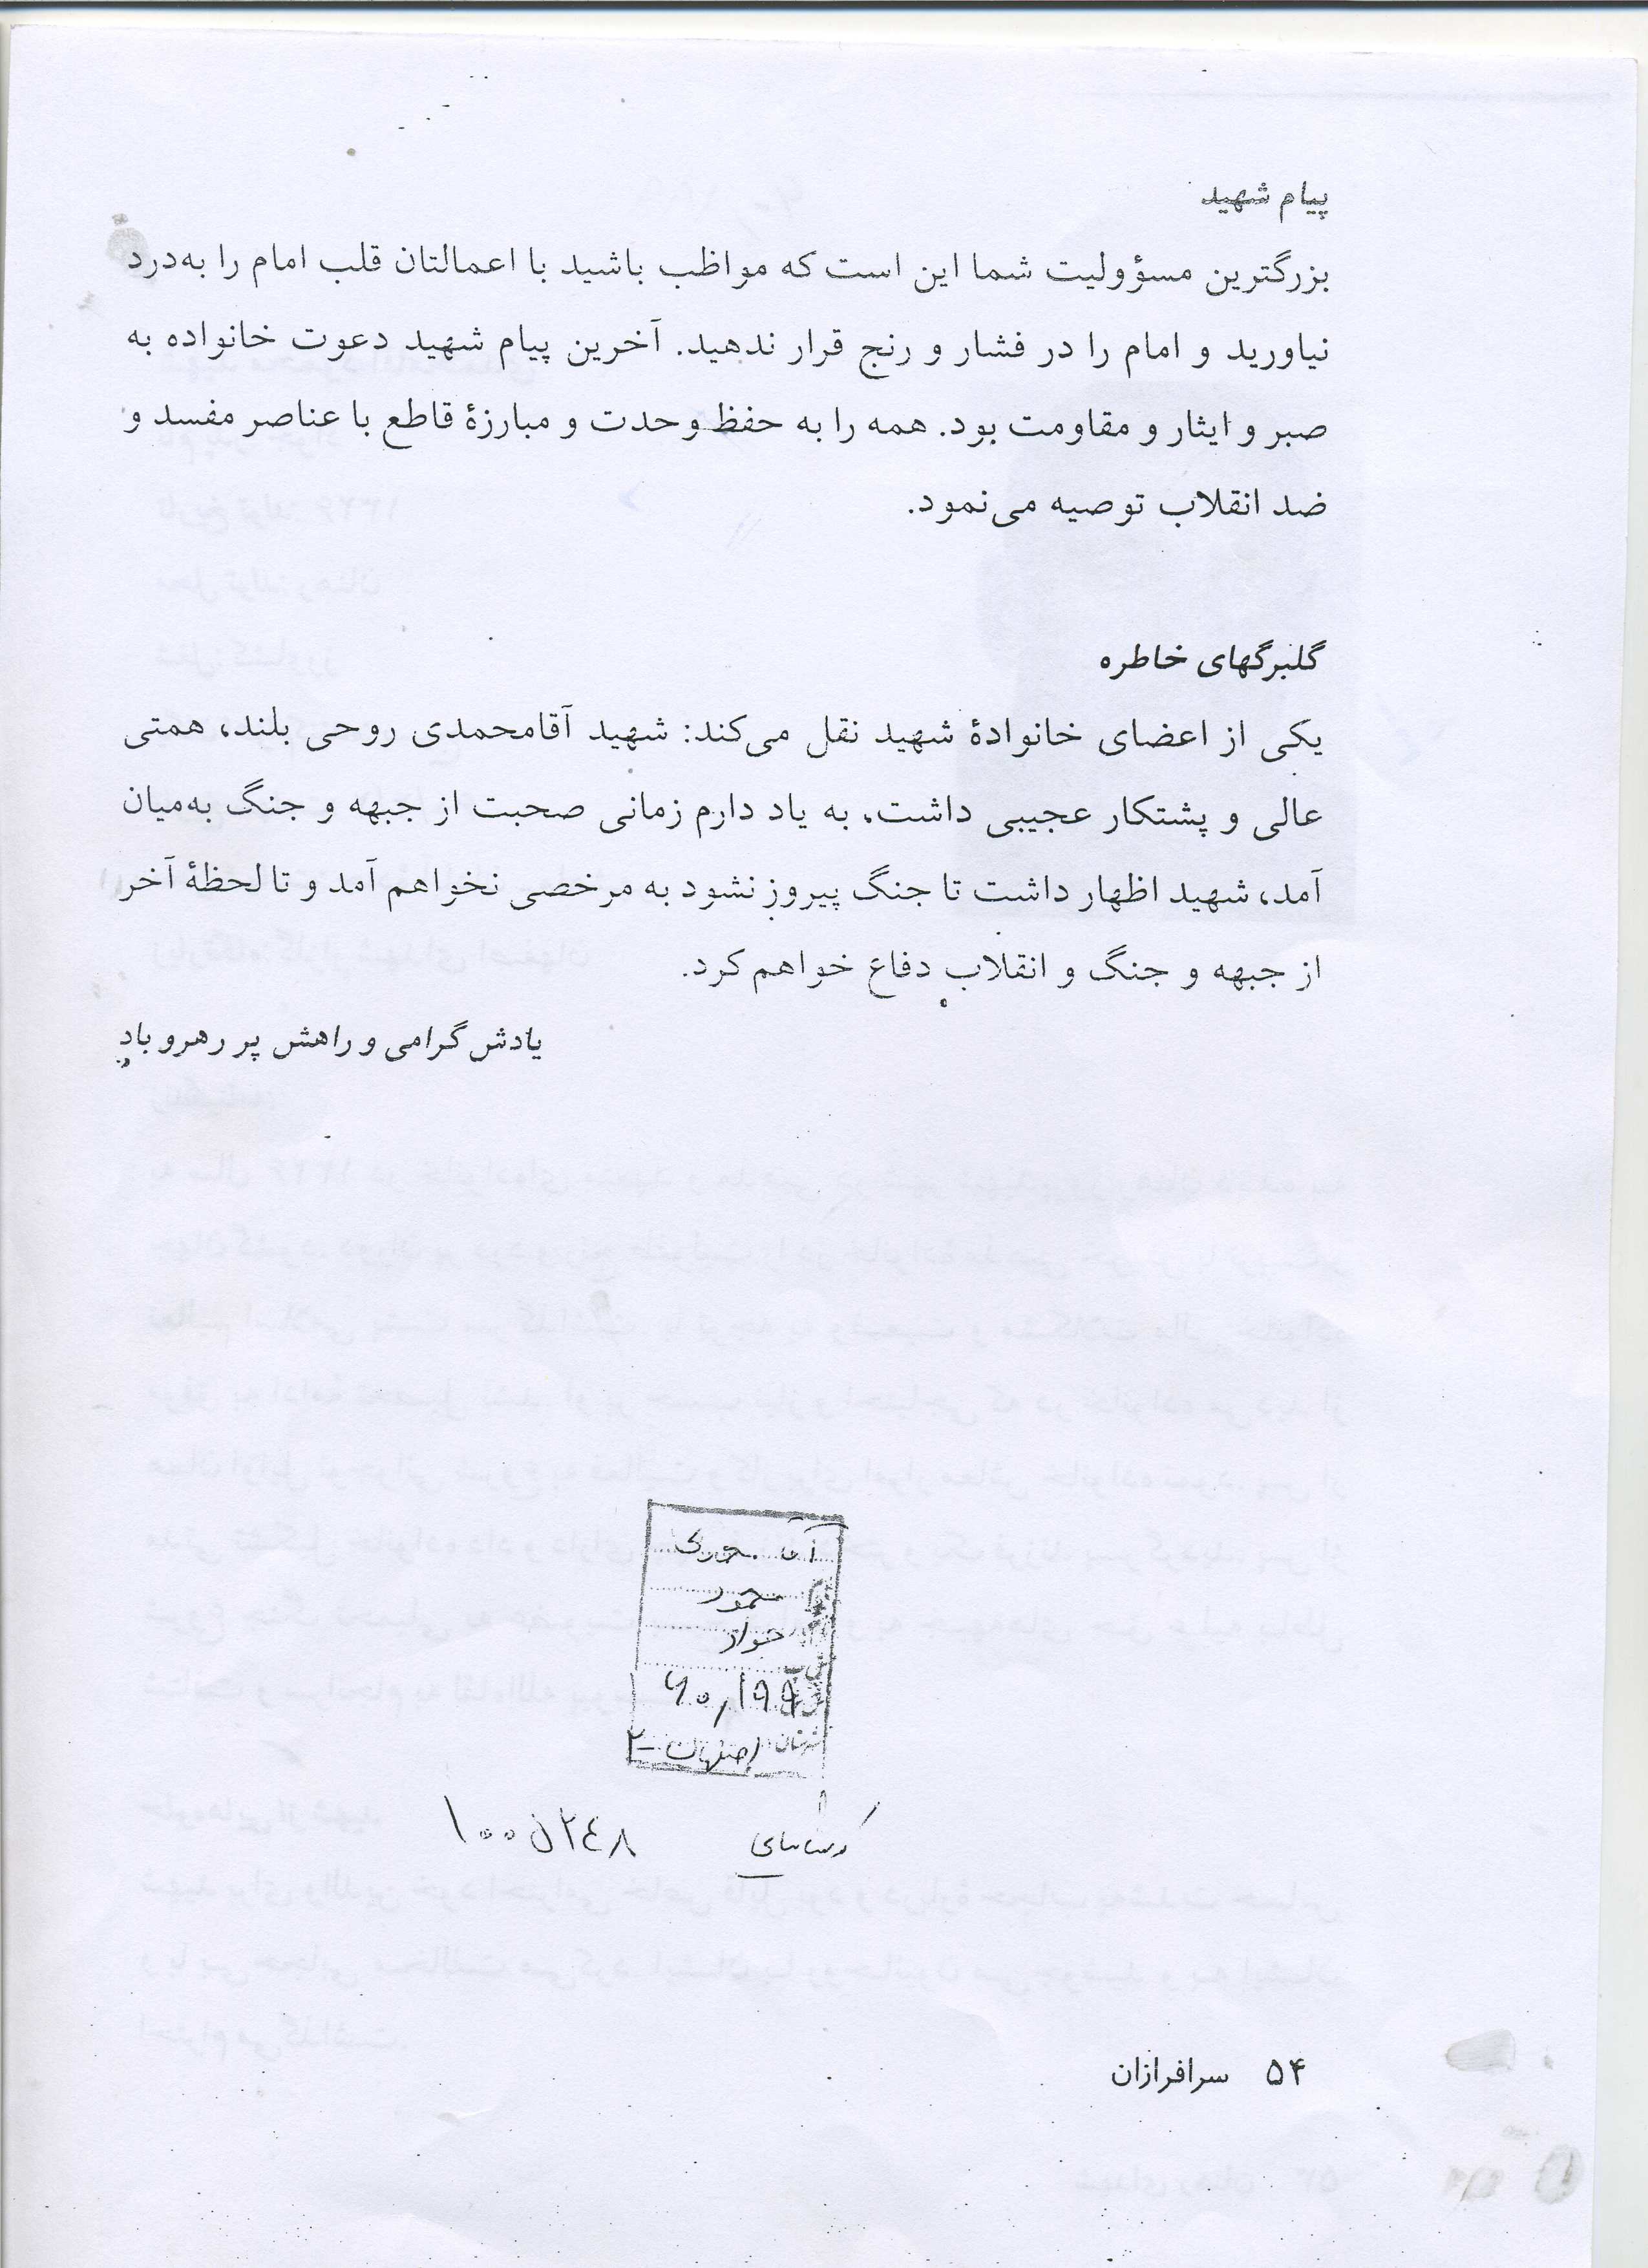 پیام شهید
بزرگترین مسؤولیت شما این است که مواظب باشید با اعمالتان قلب امام را به‌درد
نیاورید و امام را در فشار و رنج قرار ندهید. آخرین پیام شهید دعوت خانواده به
صبر و ایثار و مقاومت بود. همه را به حفظ وحدت و مبارزهٔ قاطع با عناصر مفسد و
ضد انقلاب توصیه می‌نمود.
گلبرگهای خاطره
یکی از اعضای خانوادهٔ شهید نقل می‌کند: شهید آقامحمدی روحی بلند، همتی
عالی و پشتکار عجیبی داشت. به یاد دارم زمانی صحبت از جبهه و جنگ به‌میان
آمد، شهید اظهار داشت تا جنگ پیروز نشود به مرخصی نخواهم آمد و تا لحظهٔ آخر
از جبهه و جنگ و انقلاب دفاع خواهم کرد.
یادش گرامی و راهش پر رهرو باد
محمود
جواد
شهرستان: اصفهان-۲
۱۰۰۵۲۴۸
۵۴ سرافرازان